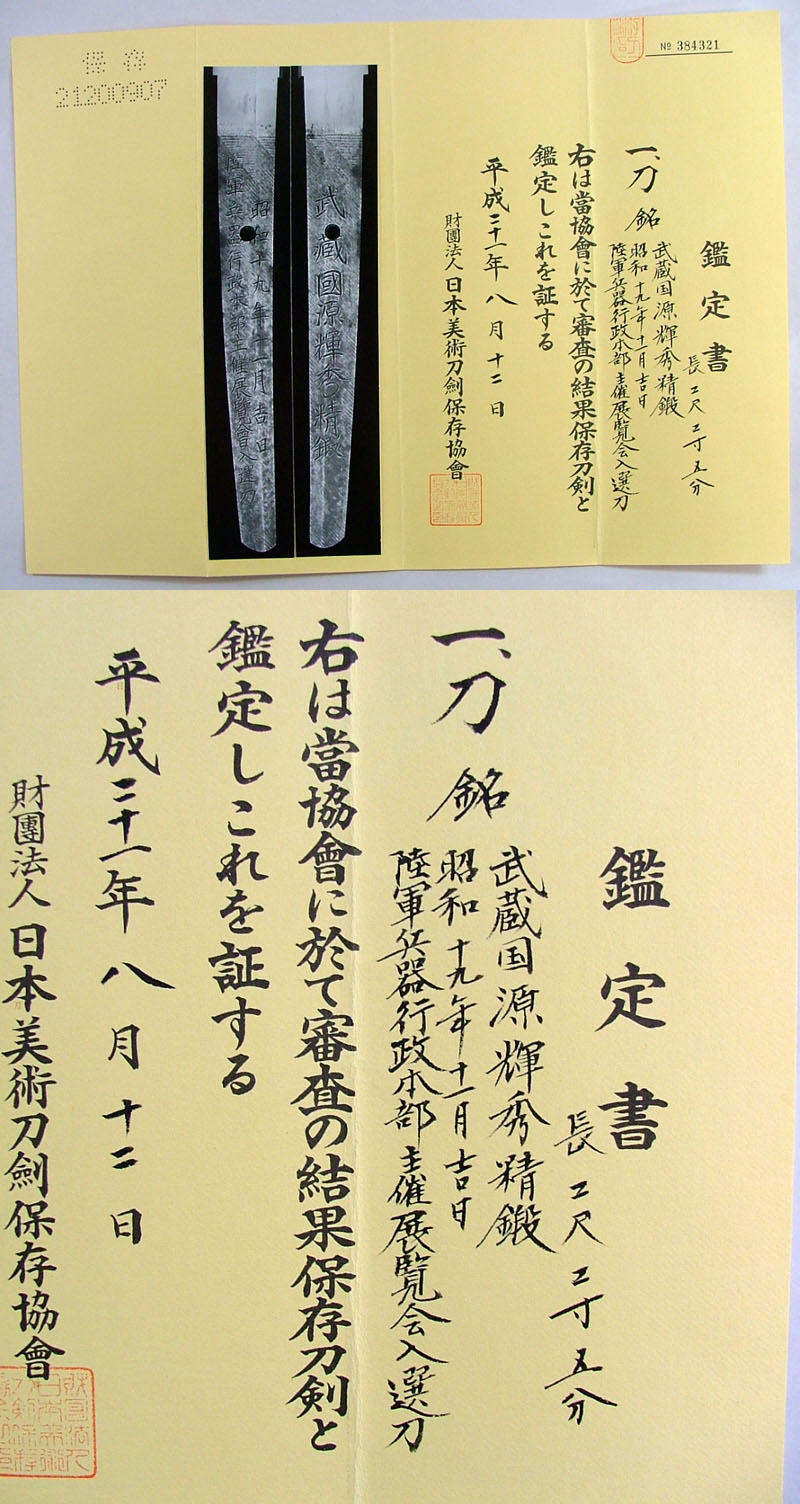 保存
21200907
№ 384321
鑑定書
一、刀 銘 武蔵国源輝秀精鍛
昭和十九年十一月吉日
陸軍兵器行政本部主催展覧会入選刀
長二尺二寸五分
右は當協會に於て審査の結果保存刀剣と
鑑定しこれを証する
平成二十一年八月十二日
財團法人日本美術刀劍保存協會
武蔵國源輝秀精鍛
昭和十九年十一月吉日
陸軍兵器行政本部主催展覽會入選刀
鑑定書
長二尺二寸五分
一、刀 銘 武蔵国源輝秀精鍛
昭和十九年十一月吉日
陸軍兵器行政本部主催展覧会入選刀
右は當協會に於て審査の結果保存刀剣と
鑑定しこれを証する
平成二十一年八月十二日
財團法人日本美術刀劍保存協會